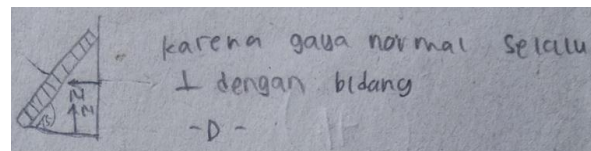 karena gaya normal selalu
⊥ dengan bidang
-D-
N
N